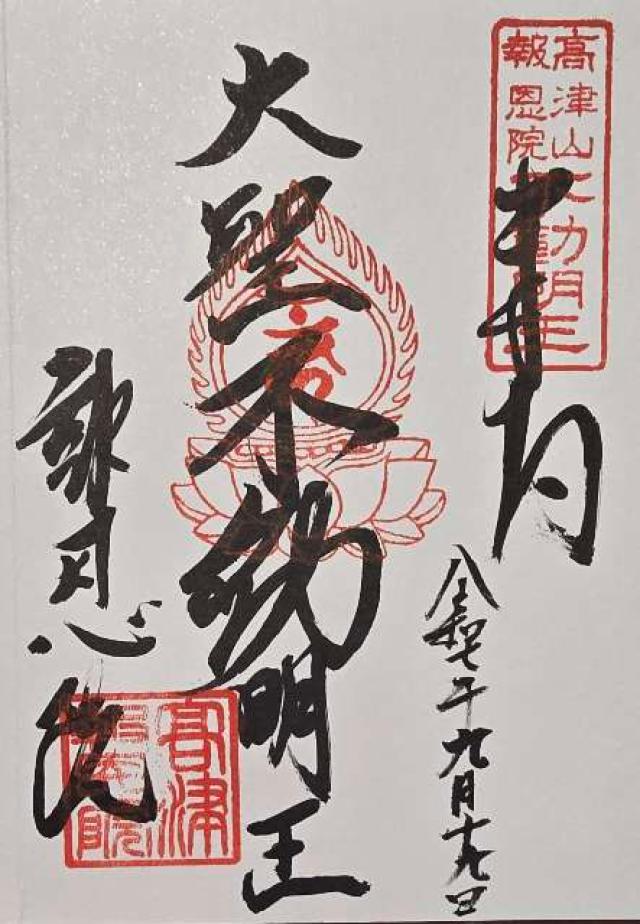 高津山不動明王
報恩院
奉拝
令和七年九月十九日
大聖不動明王
報恩院
高津
報恩院